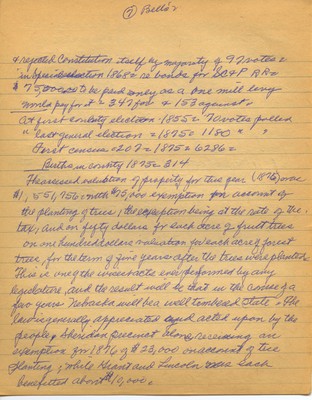 ⑦ Bell's
& rejected Constitution itself by majority of 97 votes =
in special election 1868 = re bonds for SC&P RR =
$75,000 to be paid money as a one mill levy
would pay for it = 347 for & 153 against =
At first county election = 1855 = 70 votes polled
" last general election = 1875 = 1180 " "
First census = 207 = 1875 = 6286 =
Births in county 1875 = 314
The assessed valuation of property for this year (1876) was
$1,551,756 = with $75,000 exemption for account of
the planting of trees, the exemption being at the rate of the
tax, and on fifty dollars for each acre of fruit trees
on one hundred dollars valuation for each acre of forest
trees, for the term of five years after the trees were planted
This is one of the wisest acts ever performed by any
legislature, and the result will be that in the course of a
few years Nebraska will be a well timbered State = The
law is generally appreciated and acted upon by the
people, Sheridan precinct alone receiving an
exemption for 1876 of $23,000 on account of tree
planting, while Grant and Lincoln were each
benefitted about $10,000.